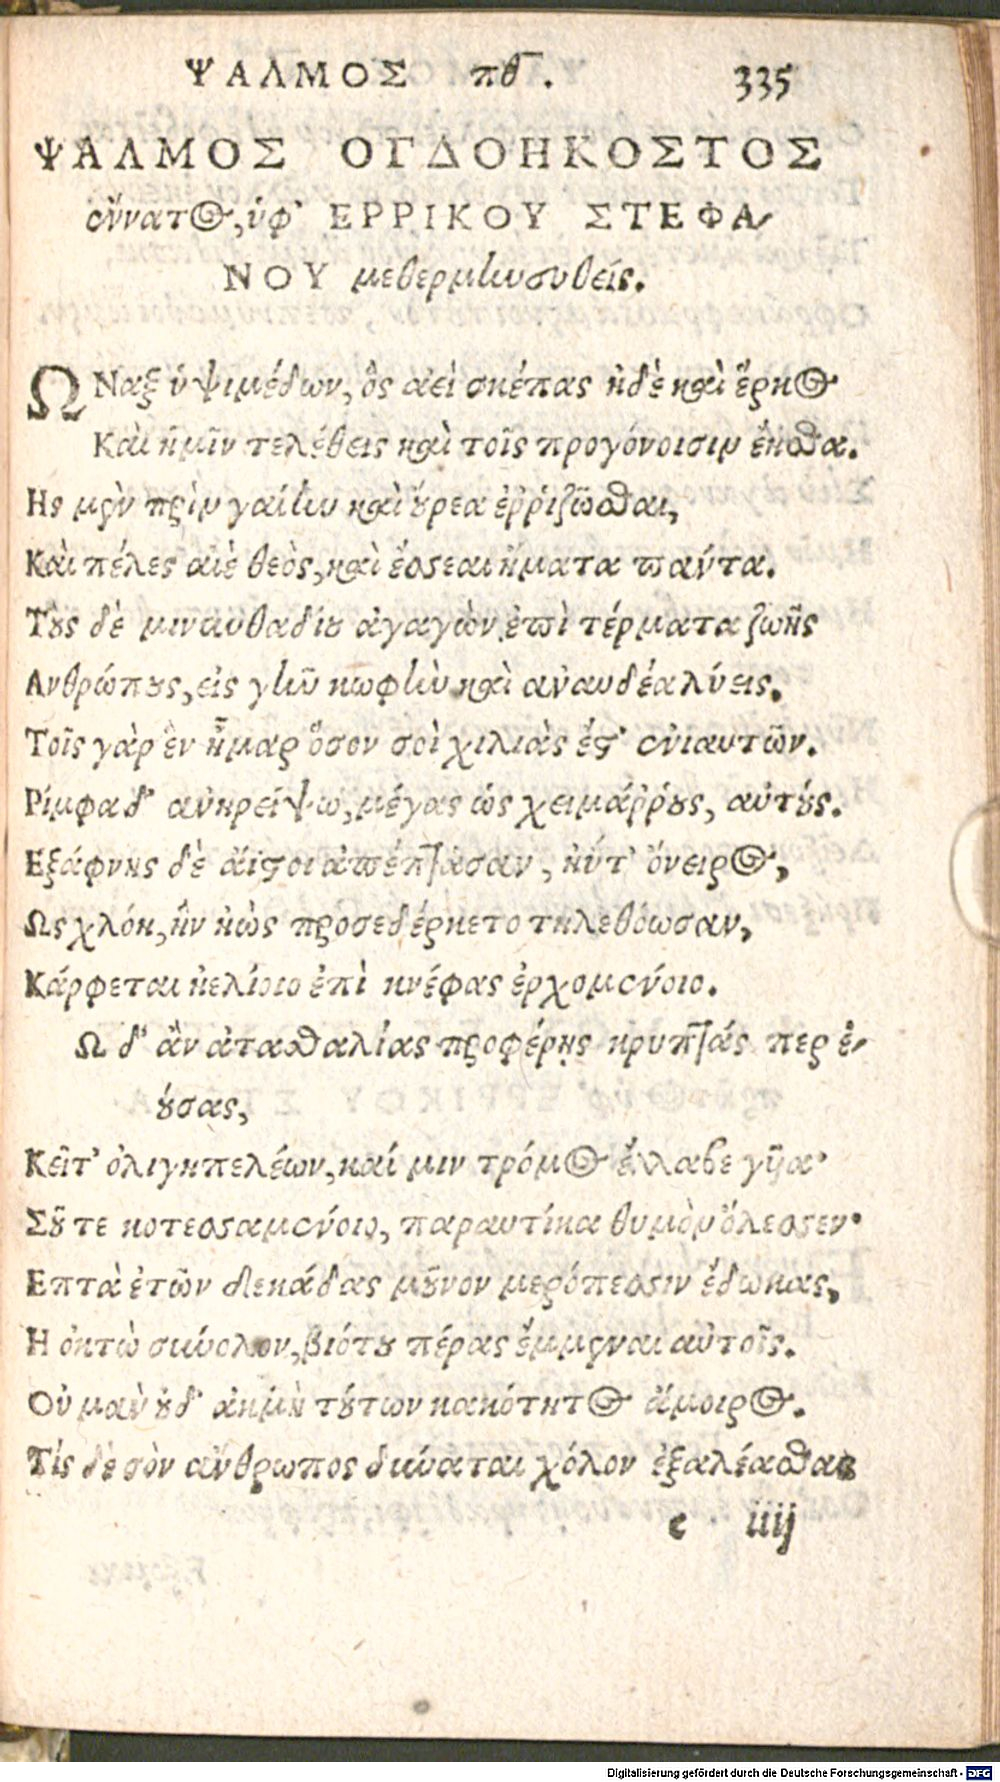 ΨΑΛΜΟΣ πθ.
335
ΨΑΛΜΟΣ ΟΓΔΟΗΚΟΣΤΟΣ
ἔννατος, ὑφ' ΕΡΡΙΚΟΥ ΣΤΕΦΑ-
ΝΟΥ μεθερμηνευθείς.
Ω Ναξ ὑψιμέδων, ὃς αἰεὶ σκέπας ἠδὲ καὶ ἕρκος
Καὶ ἡμῖν τελέθεις καὶ τοῖς προγόνοισιν ἔκαθα.
Ης μὲν πρὶν γαίην καὶ οὔρεα ἐῤῥιζῶσθαι,
Καὶ πέλες αἰὲ θεὸς, καὶ ἔσσεαι ἤματα πάντα.
Τοὺς δὲ μινυυθαδίου ἀγαγὼν ἐπὶ τέρματα ζωῆς
Ανθρώπους, εἰς γῆν κωφὴν καὶ ἀναυδέα λύεις.
Τοῖς γὰρ ἓν ἦμαρ ὅσον σοὶ χιλιὰς ἔστ' ἐνιαυτῶν.
Ρίμφα δ' ἀνηρείψω, μέγας ὡς χειμάῤῥους, αὐτούς.
Εξάφνης δὲ ἄϊστοι ἀπέπτασαν, ἠΰτ' ὄνειρος,
Ως χλόη, ἣν ἠὼς προσεδέρκετο τηλεθόωσαν,
Κάρφεται ἠελίοιο ἐπὶ κνέφας ἐρχομένοιο.
Ω δ' ἂν ἀτασθαλίας προφέρῃς κρυπτάς περ ἐ-
ούσας,
Κεῖτ' ὀλιγηπελέων, καί μιν τρόμος ἔλλαβε γυῖα·
Σοῦ τε κοτεσσαμένοιο, παραυτίκα θυμὸν ὄλεσσεν·
Επτὰ ἐτῶν δεκάδας μοῦνον μερόπεσσιν ἔδωκας,
Η ὀκτὼ σύνολον, βιότου πέρας ἔμμεναι αὐτοῖς.
Οὐ μὰν οὐδ' ἀκμὴ τούτων κακότητος ἄμοιρος.
Τίς δὲ σὸν ἄνθρωπος δύναται χόλον ἐξαλέασθαι
c iiij
Digitalisierung gefördert durch die Deutsche Forschungsgemeinschaft - DFG